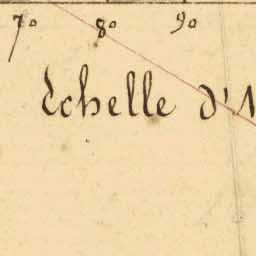 70 80 90
Echelle d'1